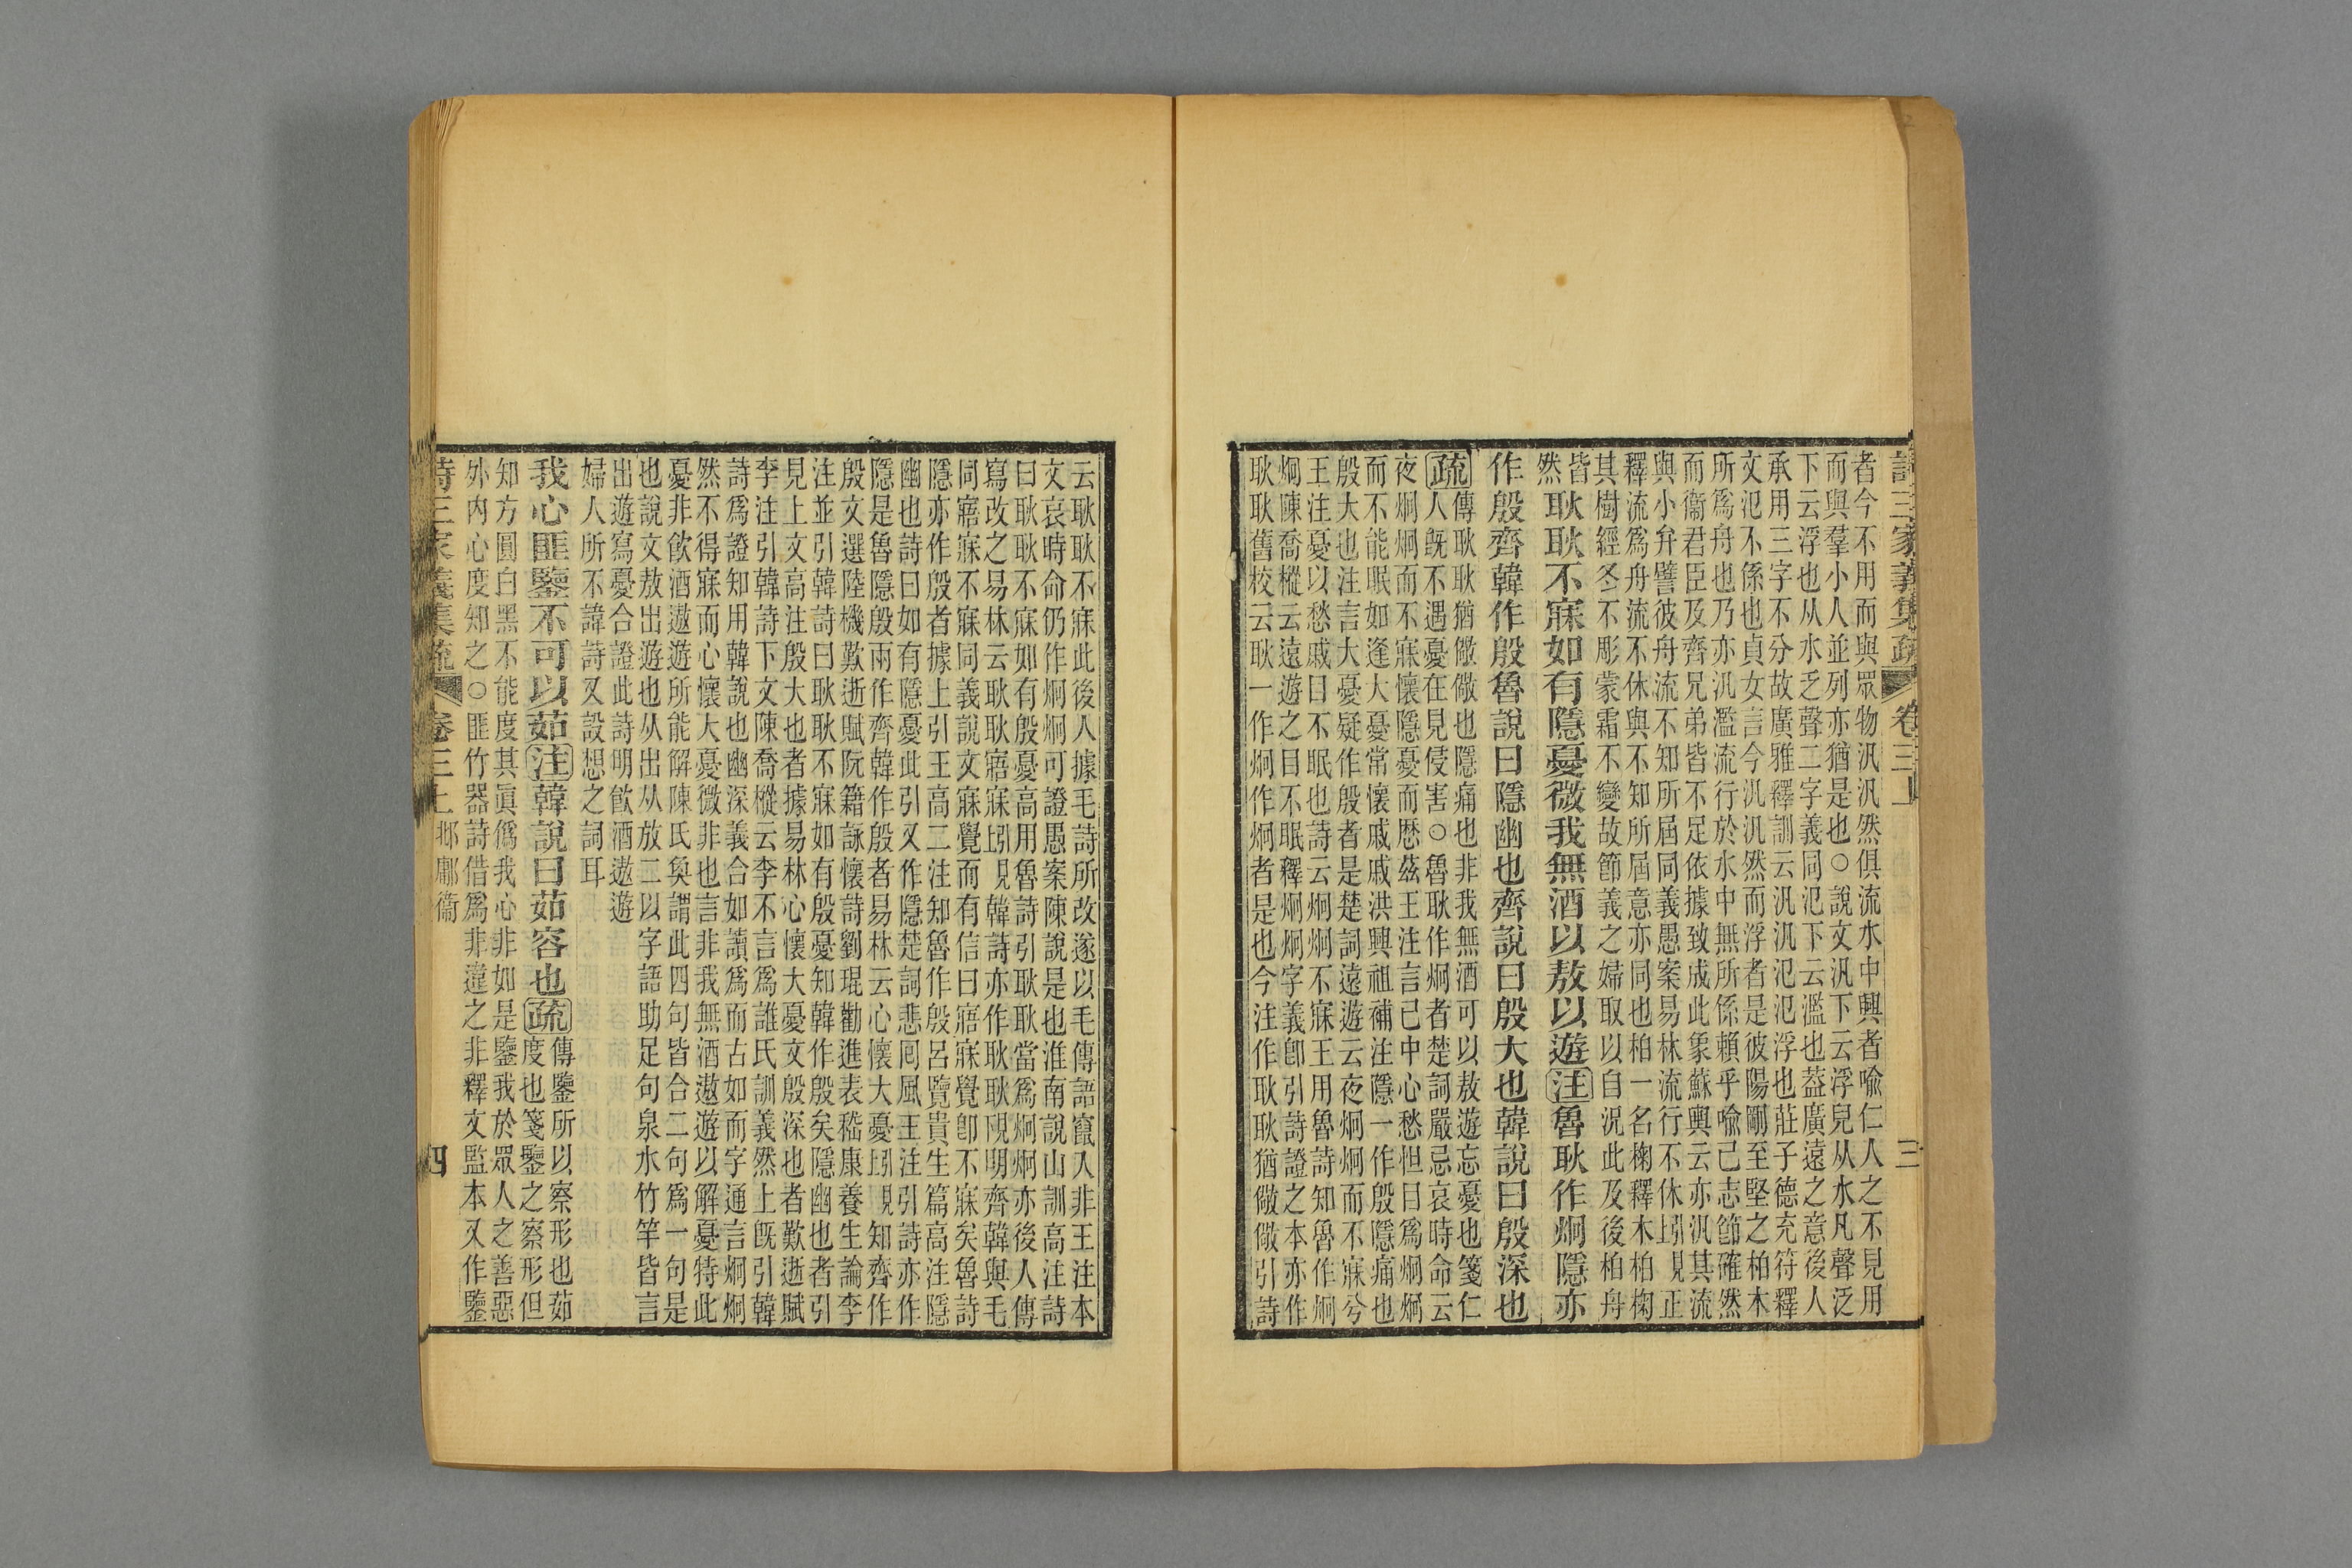 詩三家義集疏 卷三上 三
者今不用而與眾物汎汎然俱流水中興者喻仁人之不見用
而與羣小人並列亦猶是也○說文汎下云浮皃从水凡聲泛
下云浮也从水乏聲二字義同氾下云濫也葢廣遠之意後人
承用三字不分故廣雅釋訓云汎汎氾氾浮也莊子德充符釋
文氾不係也貞女言今汎汎然而浮者是彼陽剛至堅之柏木
所爲舟也乃亦汎濫流行於水中無所係賴乎喻己志節確然
而衞君臣及齊兄弟皆不足依據致成此象蘇輿云亦汎其流
與小弁譬彼舟流不知所屆同義愚案易林流行不休引見正
釋流爲舟流不休與不知所屆意亦同也柏一名椈釋木柏椈
其樹經冬不彫蒙霜不變故節義之婦取以自況此及後柏舟
皆
然
耿耿不寐如有隱憂微我無酒以敖以遊注魯耿作炯隱亦
作殷齊韓作殷魯說曰隱幽也齊說曰殷大也韓說曰殷深也
疏傳耿耿猶儆儆也隱痛也非我無酒可以敖遊忘憂也箋仁
人旣不遇憂在見侵害○魯耿作炯者楚詞嚴忌哀時命云
夜炯炯而不寐懷隱憂而歷茲王注言己中心愁怛目爲炯炯
而不能眠如逢大憂常懷戚戚洪興祖補注隱一作殷隱痛也
殷大也注言大憂疑作殷者是楚詞遠遊云夜炯炯而不寐兮
王注憂以愁戚目不眠也詩云炯炯不寐王用魯詩知魯作炯
炯陳喬樅云遠遊之目不眠釋炯炯字義卽引詩證之本亦作
耿耿舊校云耿一作炯作炯者是也今注作耿耿猶儆儆引詩
云耿耿不寐此後人據毛詩所改遂以毛傳語竄入非王注本
文哀時命仍作炯炯可證愚案陳說是也淮南說山訓高注詩
曰耿耿不寐如有殷憂高用魯詩引耿耿當爲炯炯亦後人傳
寫改之易林云耿耿寤寐引見韓詩亦作耿耿明齊韓與毛
同寤寐不寐同義說文寐覺而有信曰寤寐覺卽不寐矣魯詩
隱亦作殷者據上引王高二注知魯作殷呂覽貴生篇高注隱
幽也詩曰如有隱憂此引又作隱楚詞悲回風王注引詩亦作
隱是魯隱殷兩作齊韓作殷者易林云心懷大憂引見知齊作
殷文選陸機歎逝賦阮籍詠懷詩劉琨勸進表嵇康養生論李
注並引韓詩曰耿耿不寐如有殷憂知韓作殷矣隱幽也者引
見上文高注殷大也者據易林心懷大憂文殷深也者歎逝賦
李注引韓詩下文陳喬樅云李不言爲誰氏訓義然上旣引韓
詩爲證知用韓說也幽深義合如讀爲而古如而字通言炯炯
然不得寐而心懷大憂微非也言非我無酒遨遊以解憂特此
憂非飮酒遨遊所能解陳氏奐謂此四句皆合二句爲一句是
也說文敖出遊也从出从放二以字語助足句泉水竹竿皆言
出遊寫憂合證此詩明飮酒遨遊
婦人所不諱詩又設想之詞耳
我心匪鑒不可以茹注韓說曰茹容也疏傳鑒所以察形也茹
度也箋鑒之察形但
知方圓白黑不能度其眞僞我心非如是鑒我於眾人之善惡
外內心度知之○匪竹器詩借爲非違之非釋文監本又作鑒
詩三家義集疏 卷三上 邶鄘衞 四